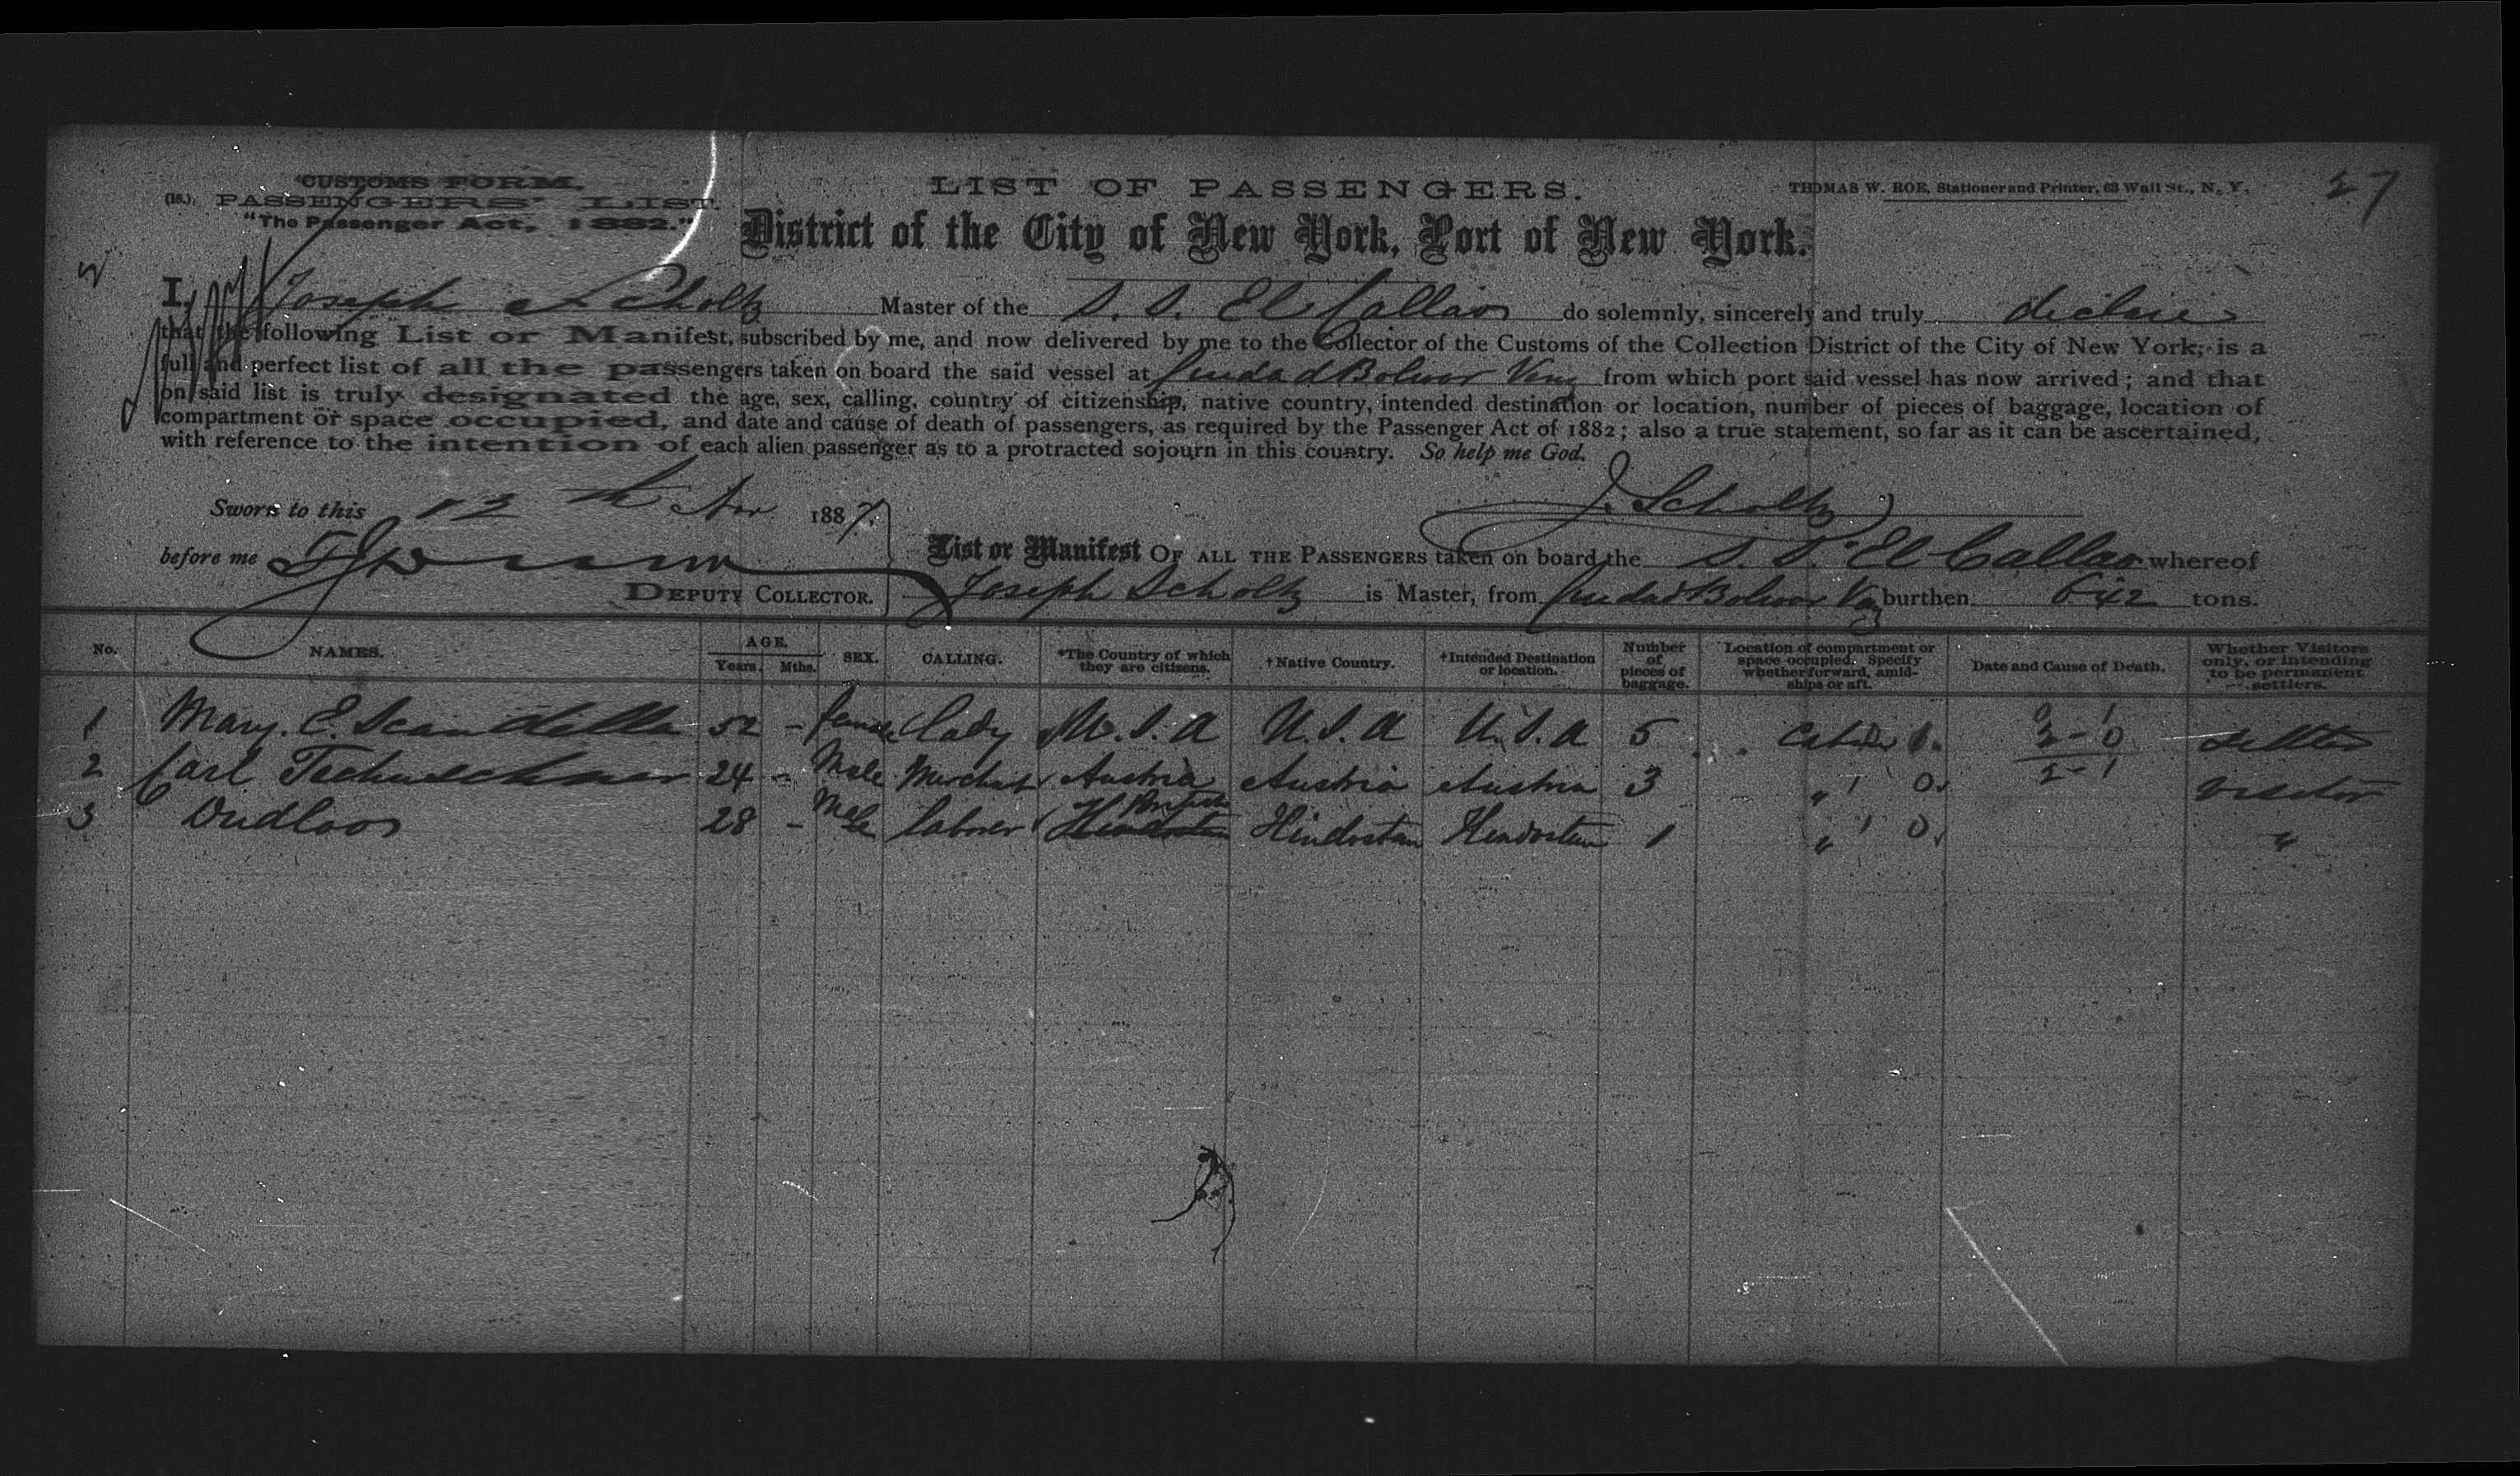 CUSTOMS FORM.
(18.) PASSENGERS' LIST.
"The Passenger Act, 1882."
LIST OF PASSENGERS.
THOMAS W. ROE, Stationer and Printer, 63 Wall St., N. Y.
27
District of the City of New York, Port of New York.
I, Joseph Scholtz Master of the S. S. El Callao do solemnly, sincerely and truly declare
that the following List or Manifest, subscribed by me, and now delivered by me to the Collector of the Customs of the Collection District of the City of New York, is a
full and perfect list of all the passengers taken on board the said vessel at Ciudad Bolivar Venz from which port said vessel has now arrived; and that
on said list is truly designated the age, sex, calling, country of citizenship, native country, intended destination or location, number of pieces of baggage, location of
compartment or space occupied, and date and cause of death of passengers, as required by the Passenger Act of 1882; also a true statement, so far as it can be ascertained,
with reference to the intention of each alien passenger as to a protracted sojourn in this country. So help me God.
J. Scholtz
Sworn to this 12th Nov 1887.
before me
DEPUTY COLLECTOR.
List or Manifest OF ALL THE PASSENGERS taken on board the S. S. El Callao whereof
Joseph Scholtz is Master, from Ciudad Bolivar Venz burthen 642 tons.
No. NAMES. AGE. Years. Mths. SEX. CALLING. *The Country of which they are citizens. †Native Country. †Intended Destination or location. Number of pieces of baggage. Location of compartment or space occupied. Specify whether forward, amidships or aft. Date and Cause of Death. Whether Visitors only, or intending to be permanent settlers.
1 Mary. E. Scandella 52 - female Lady U.S.A U.S.A U.S.A 5 Cabin 1. 2-0 Settler
2 Carl 24 - Male Merchant Austria Austria Austria 3 " 0. 2-1 Visitor
3 Dudloos 28 - Male Laborer Hindostan British Hindostan Hindostan 1 " 0. "